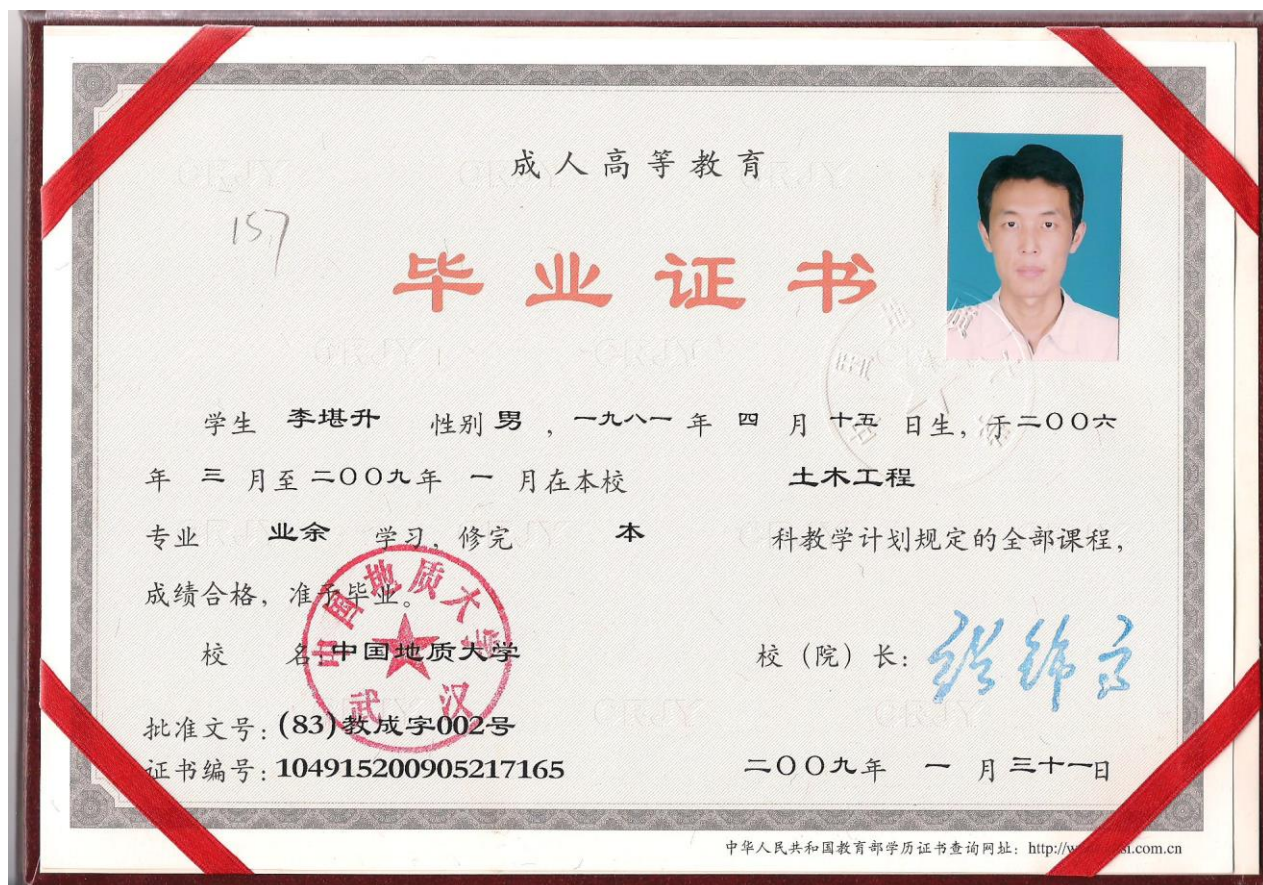 成人高等教育
157
毕业证书
学生 李堪升 性别 男 ，一九八一 年 四 月 十五 日生，于二〇〇六
年 三 月至 二〇〇九年 一 月在本校 土木工程
专业 业余 学习，修完 本 科教学计划规定的全部课程，
成绩合格，准予毕业。
校 名：中国地质大学
校（院）长：
中国地质大学
武汉
批准文号：(83)教成字002号
证书编号：104915200905217165
二〇〇九年 一 月 三十一日
中华人民共和国教育部学历证书查询网址：http://w
si.com.cn